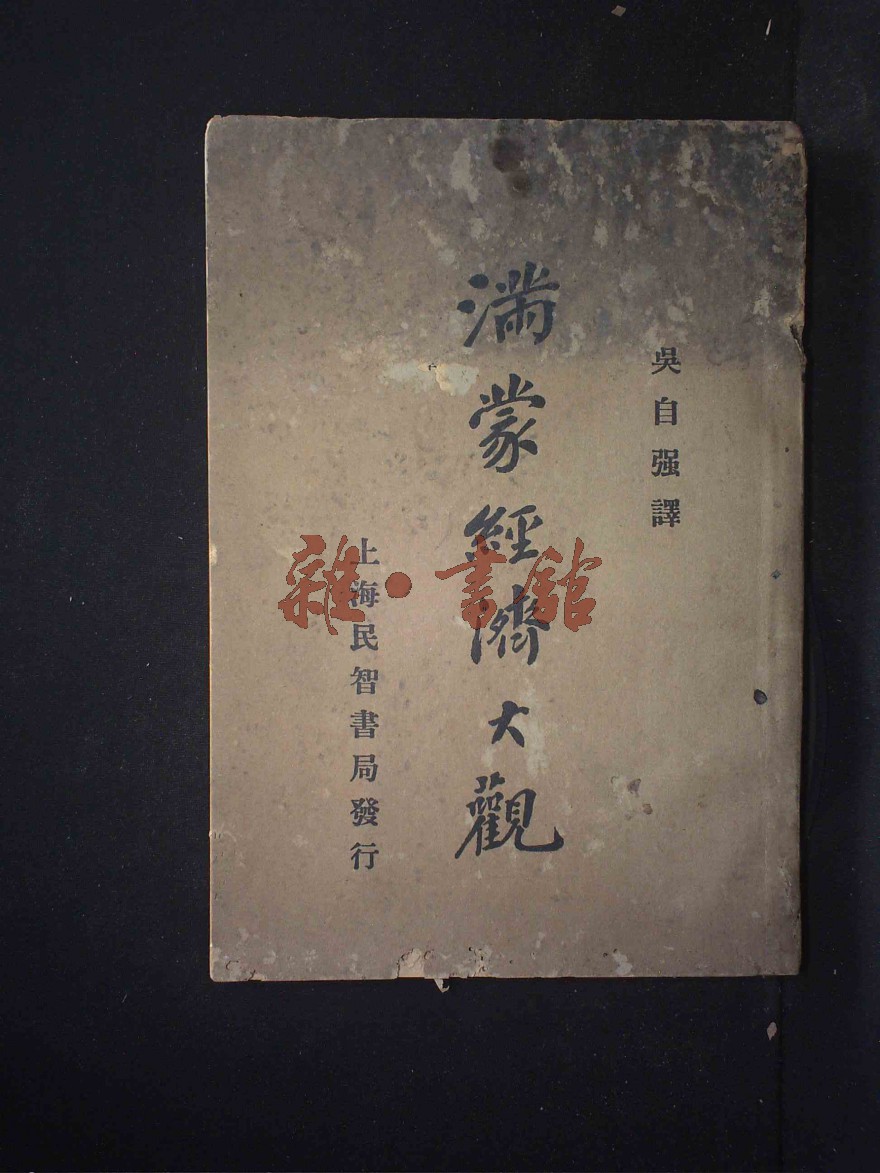 吳自强譯
滿蒙經濟大觀
上海民智書局發行
雜·書館